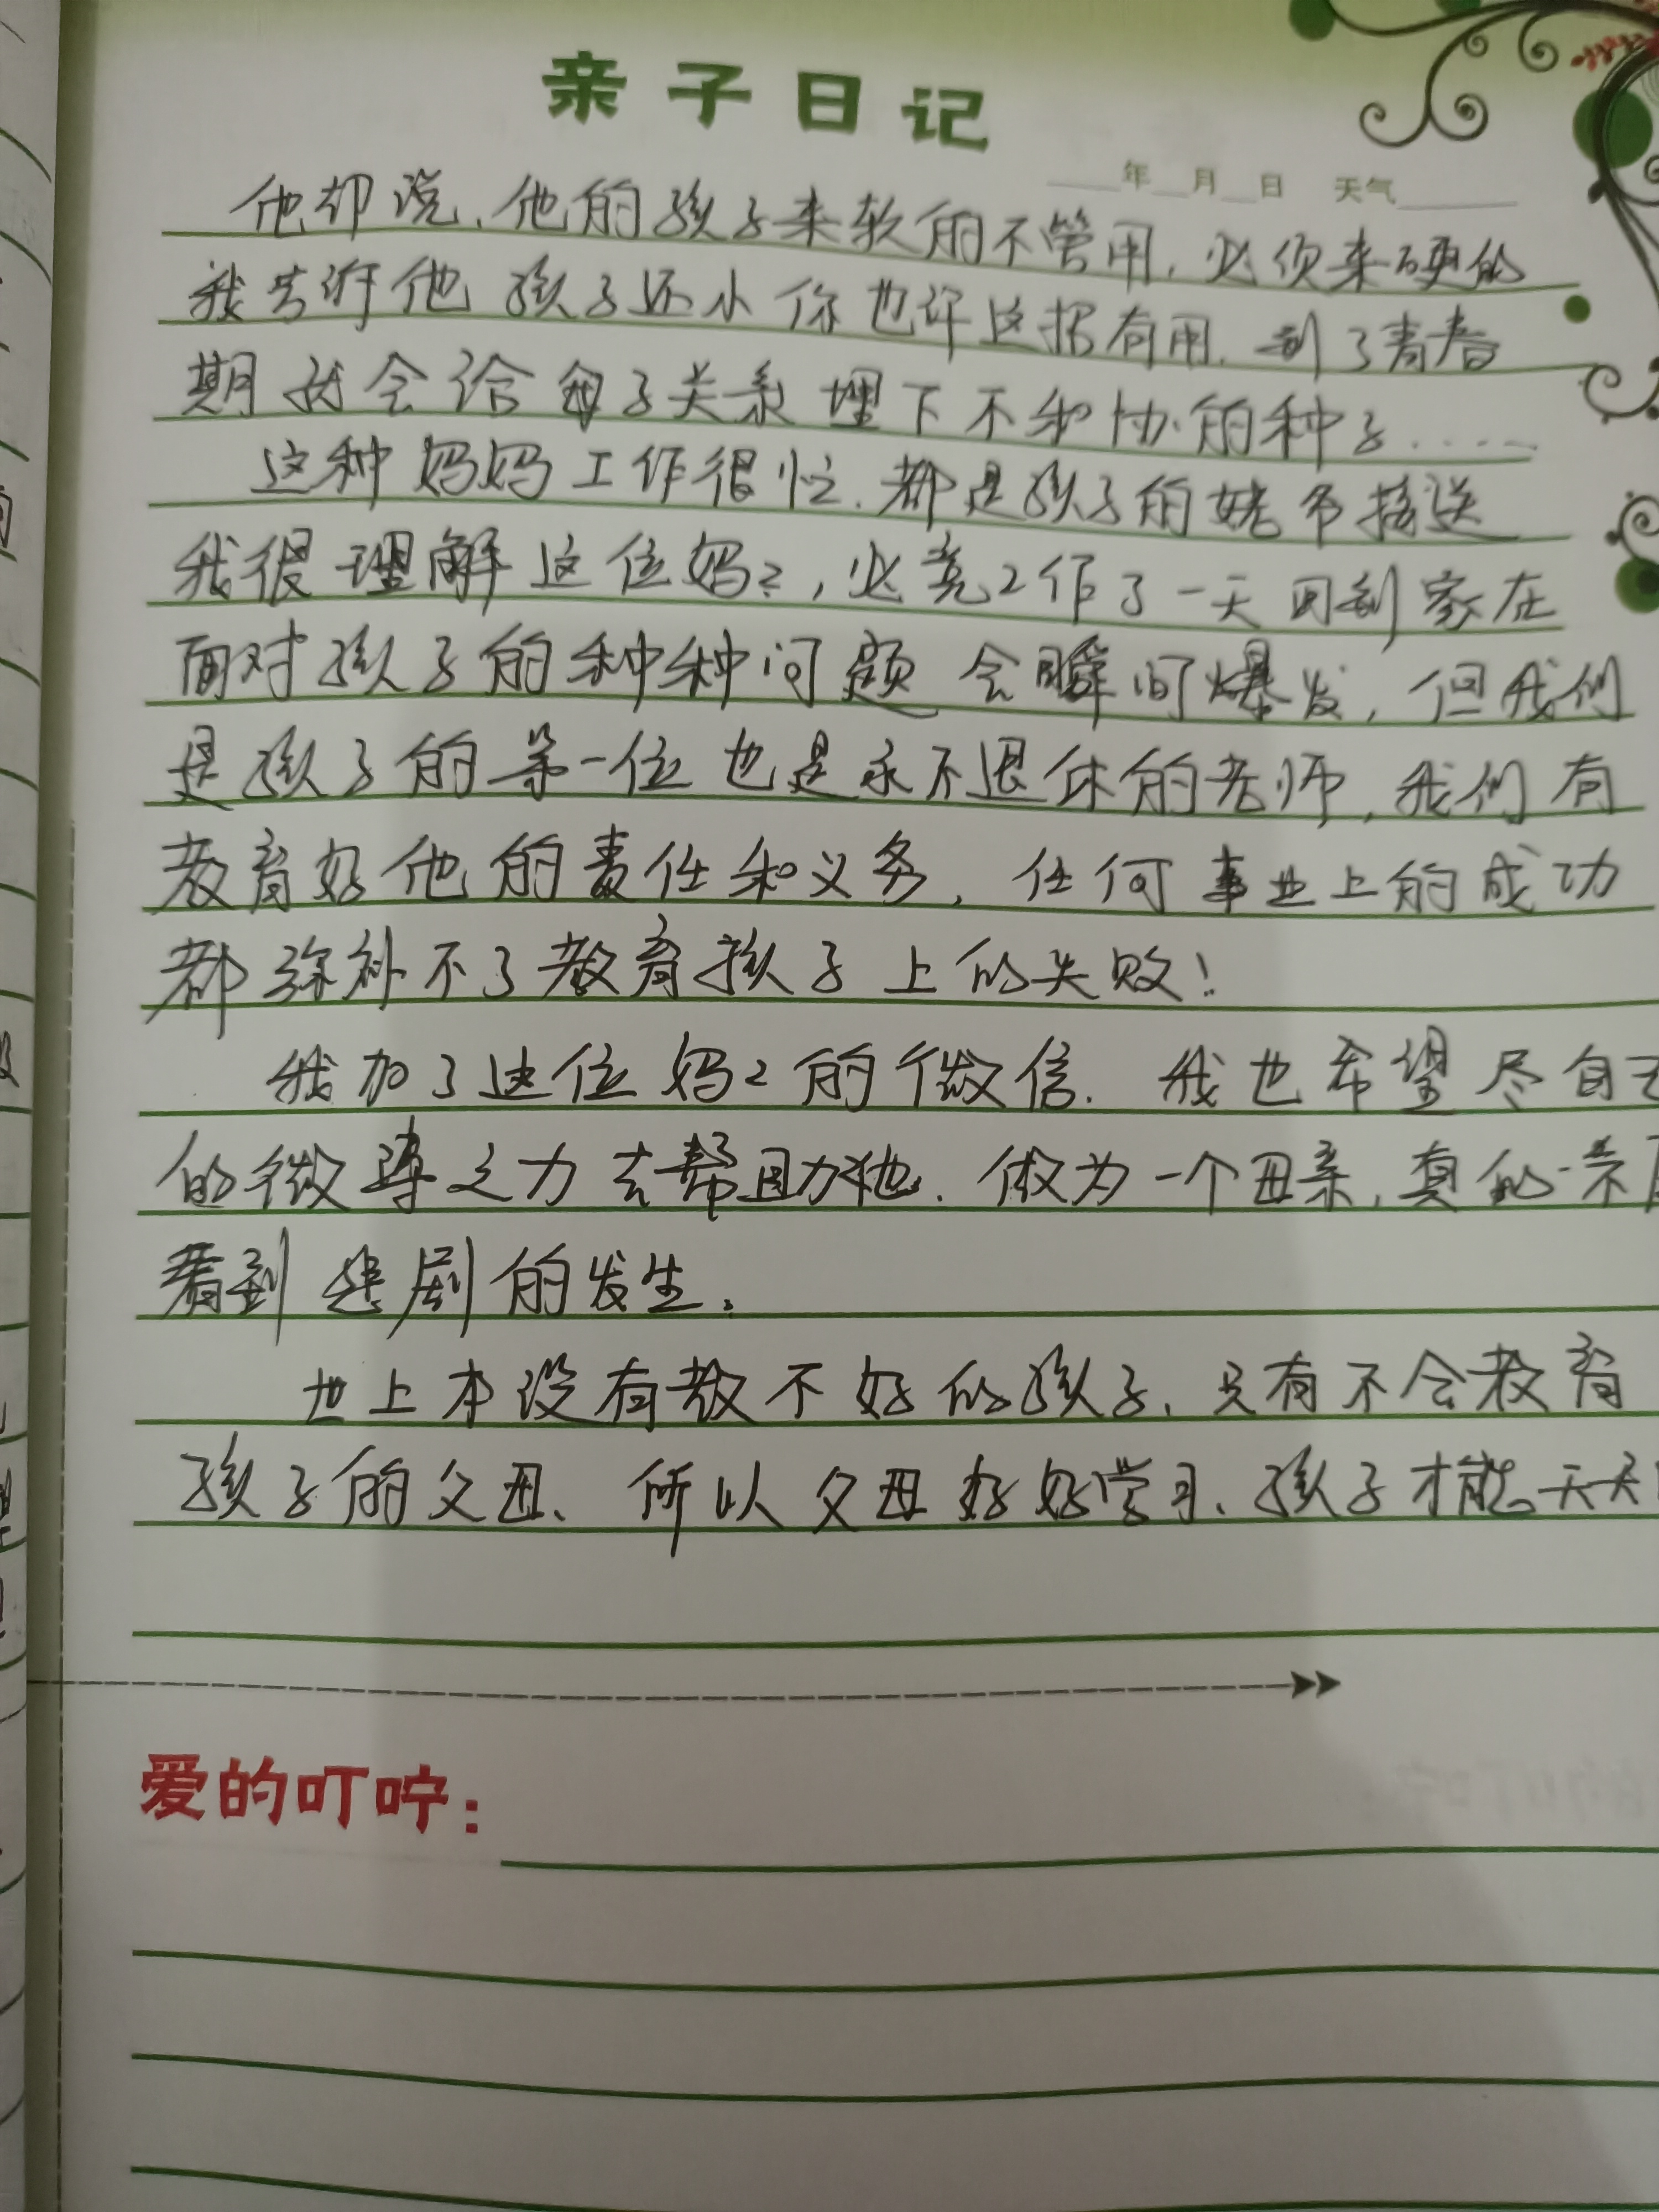 亲子日记
年 月 日 天气
他却说、他的孩子来软的不管用，必须来硬的
我告诉他 孩子还小 你也许这招有用. 到了青春
期就会给母子关系埋下不和协的种子......
这种妈妈工作很忙. 都是孩子的姥爷接送
我很理解这位妈妈, 必竟工作了一天回到家在
面对孩子的种种问题 会瞬间爆发, 但我们
是孩子的第一位也是永不退休的老师, 我们有
教育好他的责任和义务, 任何事业上的成功
都弥补不了教育孩子上的失败!
我加了这位妈妈的微信. 我也希望尽自己
的微薄之力去帮助他. 做为一个母亲, 真的不
看到悲剧的发生.
世上本没有教不好的孩子、只有不会教育
孩子的父母、所以父母好好学习、孩子才能天天
爱的叮咛: